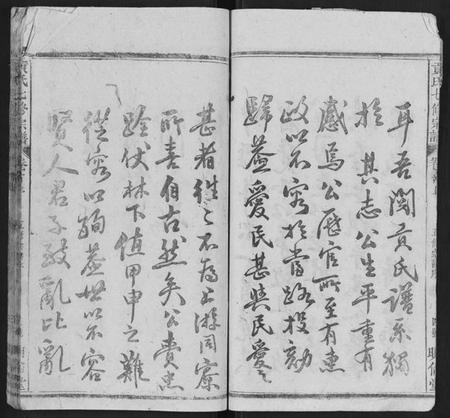 耳吾閱袁氏譜系獨
於其志公生平重有
感焉公歷官所至有惠
政以不容於當路投劾
歸蓋愛民甚與民愛之
甚者往之不為上游同寮
所喜自古然矣公費志
跧伏林下值甲申之難
從容以殉蓋世以不容
賢人君子致亂比亂